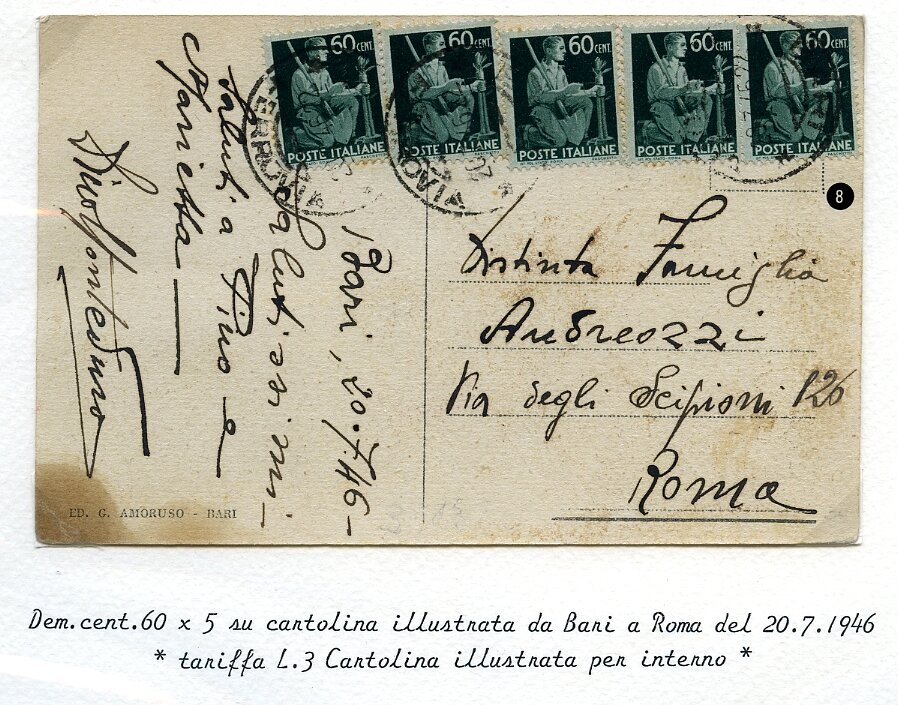 60 CENT.
POSTE ITALIANE
60 CENT.
POSTE ITALIANE
60 CENT.
POSTE ITALIANE
60 CENT.
POSTE ITALIANE
60 CENT.
POSTE ITALIANE
8
Bari, 20.7.46-
Saluti a
Pino e
Marietta
Distinta Famiglia
Andreozzi
Via degli Scipioni 126
Roma
ED. G. AMORUSO - BARI
Dem.cent.60 x 5 su cartolina illustrata da Bari a Roma del 20.7.1946
* tariffa L.3 Cartolina illustrata per interno *